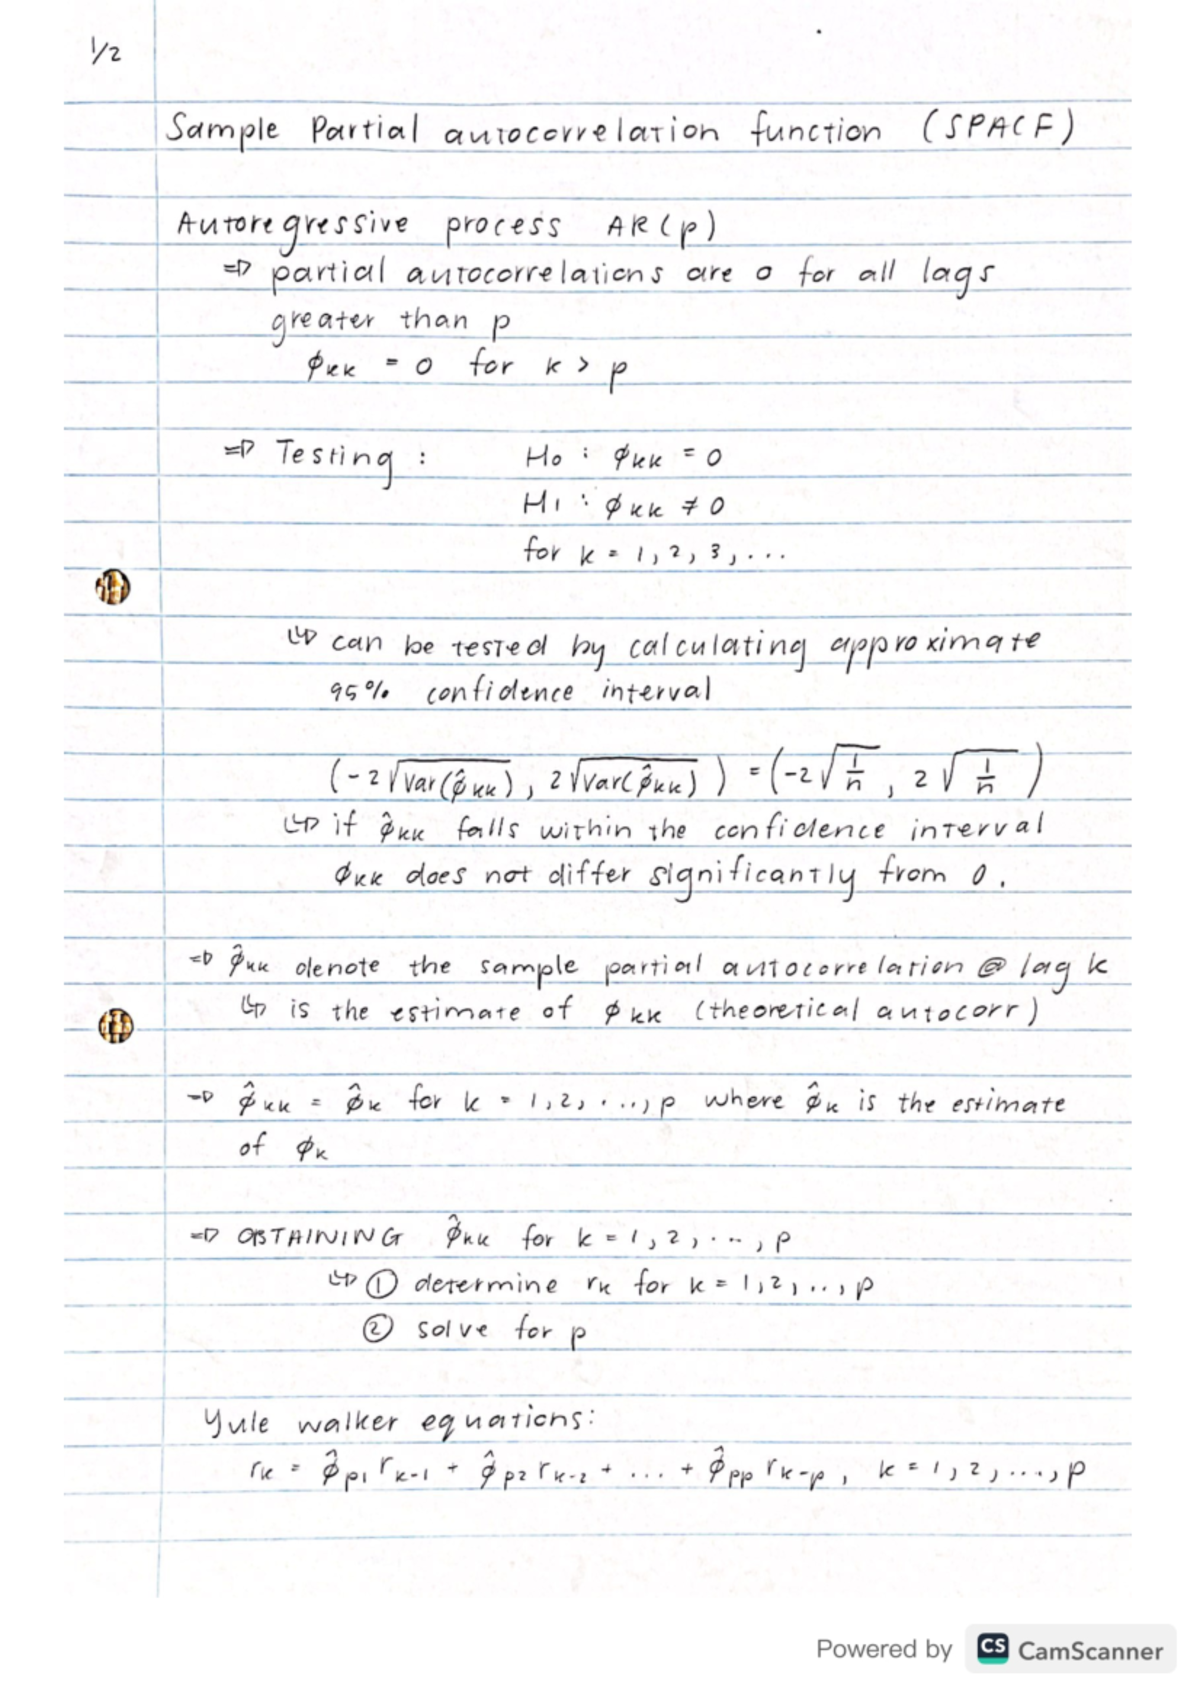 1/2
Sample Partial autocorrelation function (SPACF)
Autoregressive process AR(p)
⇒ partial autocorrelations are 0 for all lags
greater than p
ϕkk = 0 for k > p
⇒ Testing : H0 : ϕkk = 0
H1 : ϕkk ≠ 0
for k = 1, 2, 3, ...
↳ can be tested by calculating approximate
95% confidence interval
(-2√Var(ϕ̂kk), 2√Var(ϕ̂kk)) = (-2√1/n, 2√1/n)
↳ if ϕ̂kk falls within the confidence interval
ϕkk does not differ significantly from 0.
⇒ ϕ̂kk denote the sample partial autocorrelation @ lag k
↳ is the estimate of ϕkk (theoretical autocorr)
→ ϕ̂kk = ϕ̂k for k = 1, 2, ..., p where ϕ̂k is the estimate
of ϕk
⇒ OBTAINING ϕ̂kk for k = 1, 2, ..., p
↳ ① determine rk for k = 1, 2, .., p
② solve for p
Yule walker equations:
rk = ϕ̂p1 rk-1 + ϕ̂p2 rk-2 + ... + ϕ̂pp rk-p, k = 1, 2, ..., p
Powered by CS CamScanner